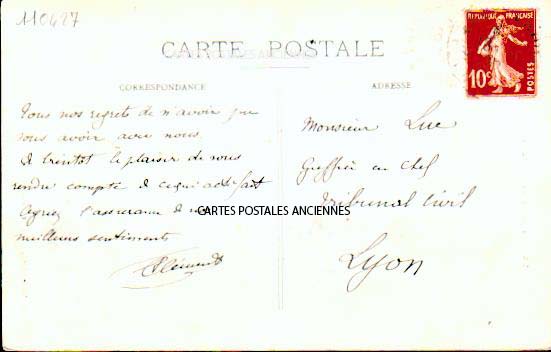 110427
CARTE POSTALE
CORRESPONDANCE
ADRESSE
REPUBLIQUE FRANÇAISE
10c
POSTES
Tous nos regrets de n'avoir pu
vous avoir avec nous.
A bientôt le plaisir de vous
rendre compte de ce qui a été fait
Agréez l'assurance de
meilleurs sentiments
Clément
Monsieur Luc
Greffier en Chef
Tribunal Civil
Lyon
CARTES POSTALES ANCIENNES